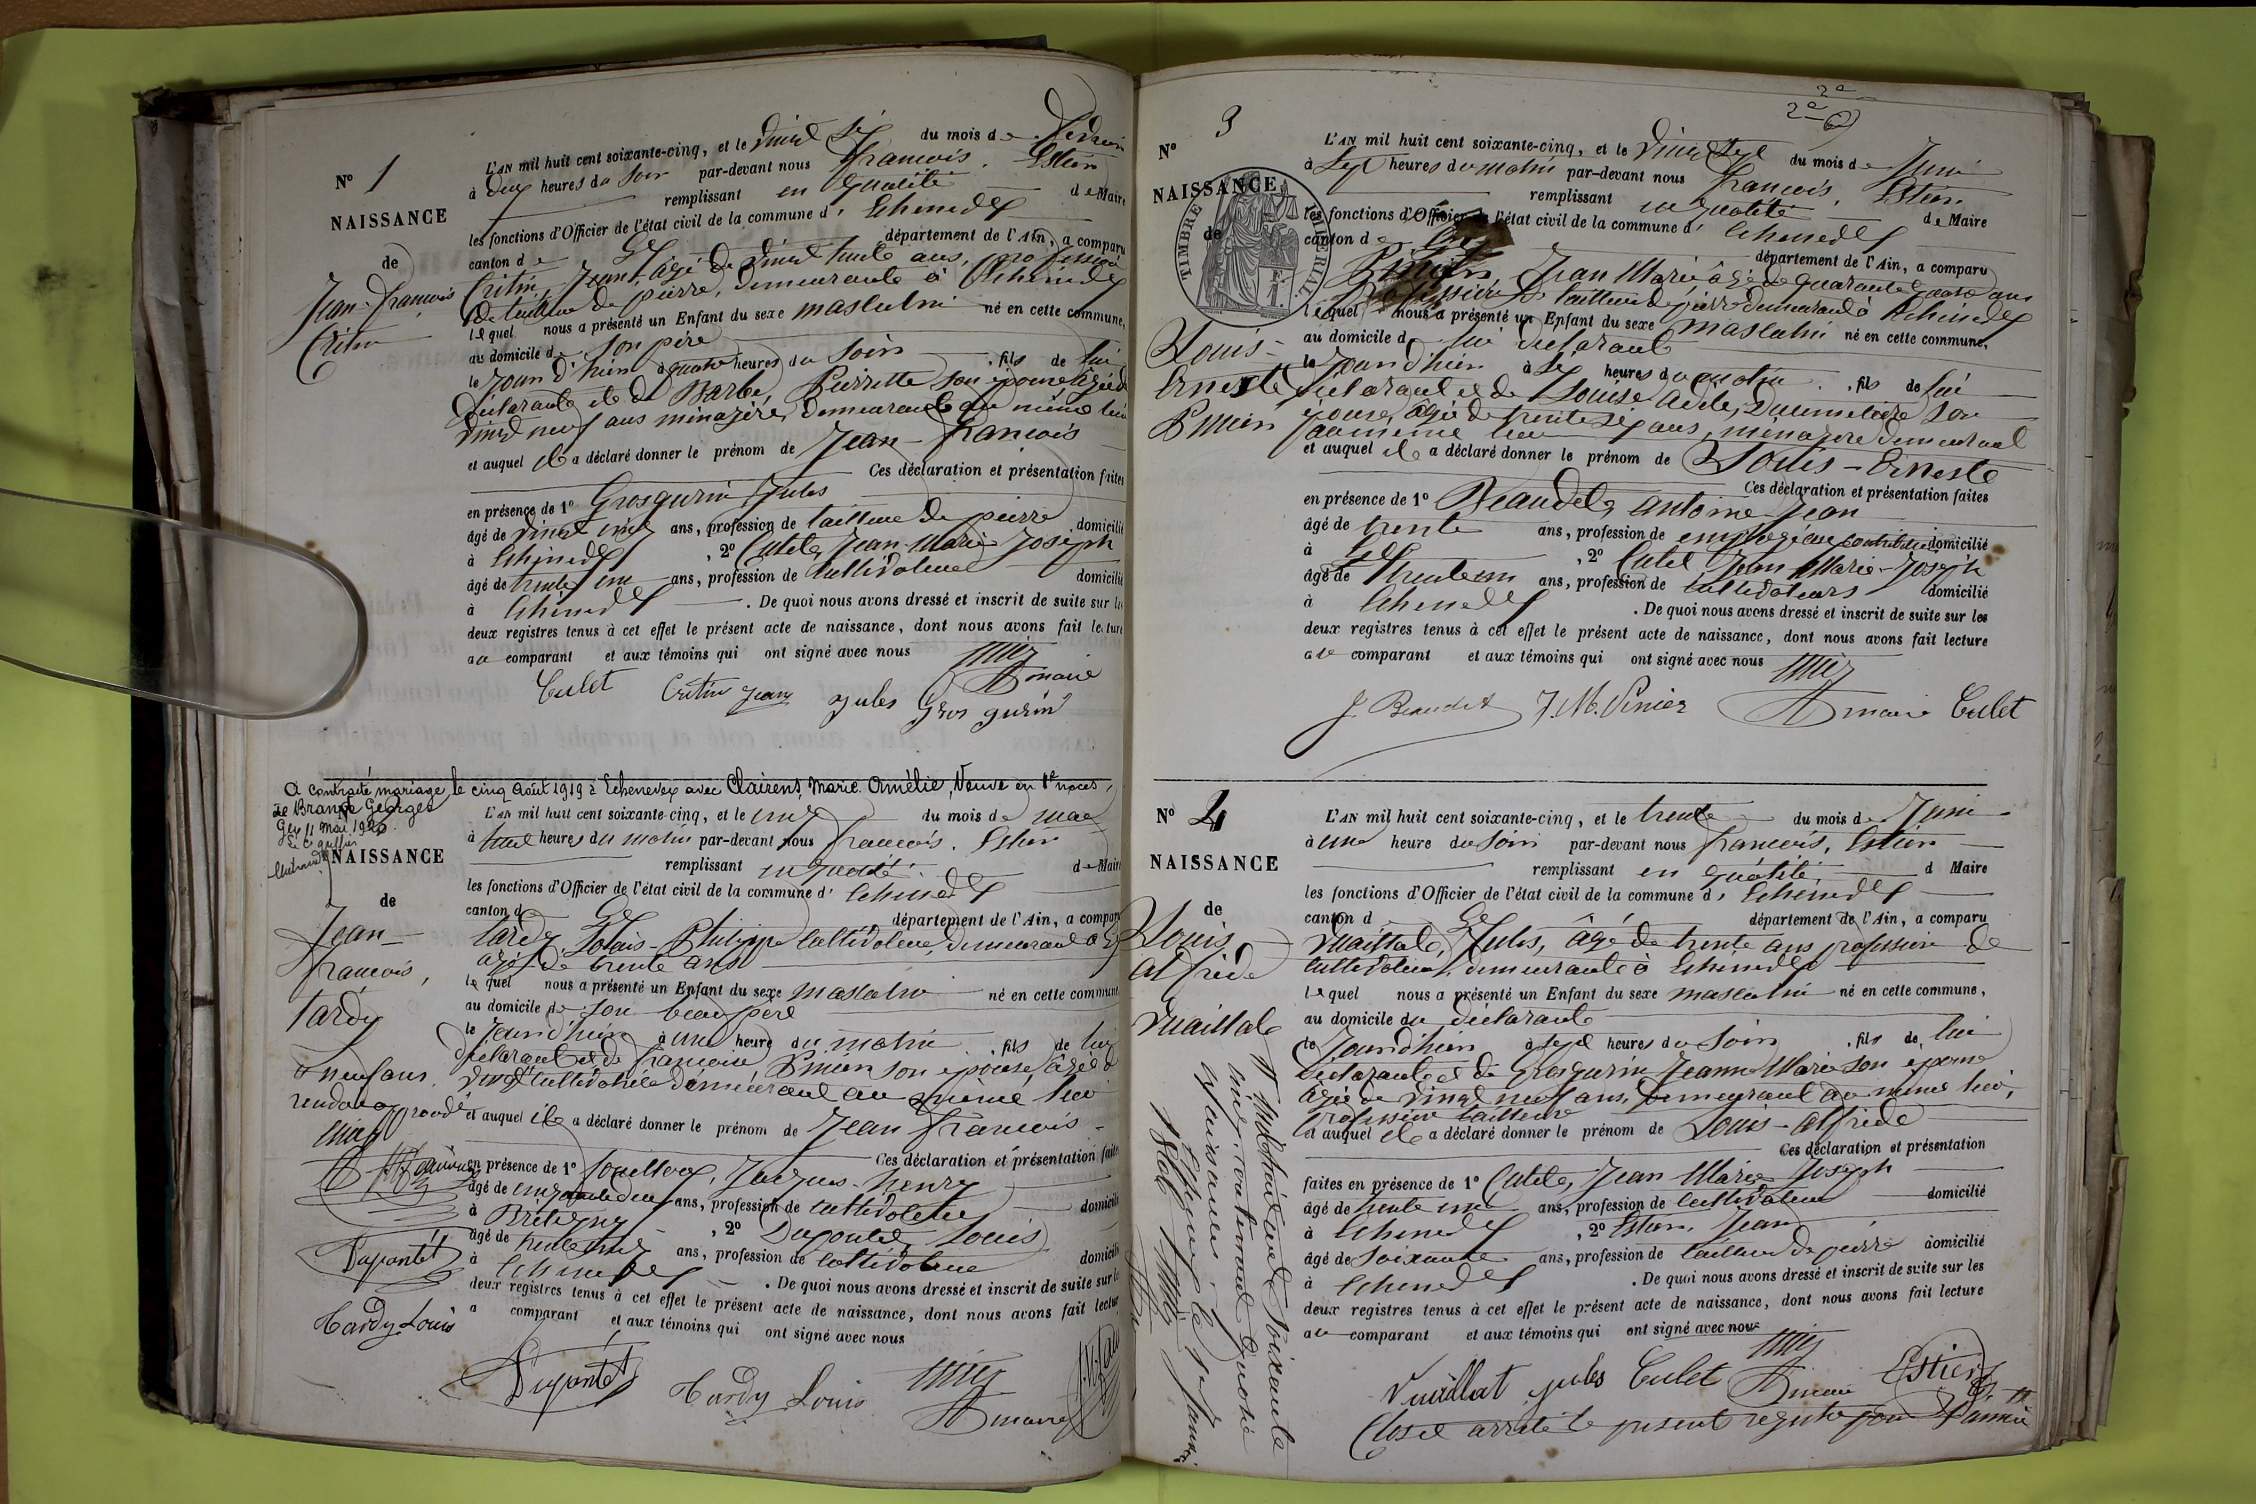 N° 1
NAISSANCE
de
Jean-françois
Critin
L'AN mil huit cent soixante-cinq, et le vingt six du mois de février
à deux heures du soir par-devant nous françois, Estier
remplissant en qualité de Maire
les fonctions d'Officier de l'état civil de la commune d' Echenevex
canton de Gex département de l'Ain, a comparu
Critin, Jean, âgé de vingt huit ans, profession
de tailleur de pierre, demeurant à Echenevex
lequel nous a présenté un Enfant du sexe masculin né en cette commune,
au domicile de son père
le jour d'hier à quatre heures du soir, fils de lui
déclarant et de Barbe, Pierrette son épouse âgée de
vingt neuf ans ménagère, demeurant au même lieu
et auquel il a déclaré donner le prénom de Jean-françois
Ces déclaration et présentation faites
en présence de 1° Grosgurin Jules
âgé de vingt cinq ans, profession de tailleur de pierre domicilié
à Echenevex, 2° Culet, Jean-Marie Joseph
âgé de trente un ans, profession de cultivateur domicilié
à Echenevex. De quoi nous avons dressé et inscrit de suite sur les
deux registres tenus à cet effet le présent acte de naissance, dont nous avons fait lecture
au comparant et aux témoins qui ont signé avec nous
Culet Critin Jean Jules Gros gurin maire
A contracté mariage le cinq Août 1919 à Echenevex avec Clairens, Marie Amélie, Veuve en 1res noces,
de Brand Georges
Gex 11 Mai 1920.
Le Cis greffier
NAISSANCE
de
Jean-
françois,
tardy
L'AN mil huit cent soixante-cinq, et le cinq du mois de mai
à huit heures du matin par-devant nous françois, Estier
remplissant en qualité de Maire
les fonctions d'Officier de l'état civil de la commune d' Echenevex
canton d Gex département de l'Ain, a comparu
tardy, Louis-Philippe cultivateur, demeurant à Gex
âgé de trente ans
lequel nous a présenté un Enfant du sexe masculin né en cette commune,
au domicile de son beau père
le jour d'hier à une heure du matin, fils de lui
déclarant et de françoise, Pinier son épouse, âgée de
vingt cultivatrice demeurant au même lieu
et auquel il a déclaré donner le prénom de Jean françois-
Ces déclaration et présentation faites
en présence de 1° Jacques-henry
âgé de cinquante deux ans, profession de cultivateur domicilié
à Bretigny, 2° Dupontet Louis
âgé de trente cinq ans, profession de cultivateur domicilié
à Echenevex. De quoi nous avons dressé et inscrit de suite sur les
deux registres tenus à cet effet le présent acte de naissance, dont nous avons fait lecture
a comparant et aux témoins qui ont signé avec nous
Dupontet
Tardy Louis
Dupontet Tardy Louis maire
N° 3
NAISSANCE
de
TIMBRE IMPÉRIAL
Louis-
Erneste
Pinier
L'AN mil huit cent soixante-cinq, et le vingt sept du mois de Juin
à sept heures du matin par-devant nous françois, Estier
remplissant en qualité de Maire
les fonctions d'Officier de l'état civil de la commune d' Echenevex
canton de Gex département de l'Ain, a comparu
Pinier, Jean Marie âgé de quarante quatre ans
profession de tailleur de pierre demeurant à Echenevex
lequel nous a présenté un Enfant du sexe masculin né en cette commune,
au domicile d lui déclarant
le jour d'hier à six heures du matin, fils de lui
déclarant et de Louise Adèle, son
épouse, âgée de trente six ans, ménagère demeurant
au même lieu
et auquel il a déclaré donner le prénom de Louis-Erneste
Ces déclaration et présentation faites
en présence de 1° Beaudet, antoine Jean
âgé de trente ans, profession de employé aux contributions domicilié
à Gex, 2° Culet Jean Marie-Joseph
âgé de trente un ans, profession de cultivateurs domicilié
à Echenevex. De quoi nous avons dressé et inscrit de suite sur les
deux registres tenus à cet effet le présent acte de naissance, dont nous avons fait lecture
au comparant et aux témoins qui ont signé avec nous
J Beaudet J. M. Pinier maire Culet
N° 4
NAISSANCE
de
Louis
alfrède
Vuaillat
L'AN mil huit cent soixante-cinq, et le trente du mois de Juin
à une heure du soir par-devant nous françois, Estier
remplissant en qualité d Maire
les fonctions d'Officier de l'état civil de la commune d' Echenevex
canton d Gex département de l'Ain, a comparu
Vuaillat, Jules, âgé de trente ans profession de
cultivateur, demeurant à Echenevex
lequel nous a présenté un Enfant du sexe masculin né en cette commune,
au domicile du déclarant
le jour d'hier à sept heures du soir, fils de lui
déclarant et de Grosgurin Jeanne Marie son épouse
âgée de vingt neuf ans, demeurant au même lieu,
profession tailleuse
et auquel il a déclaré donner le prénom de Louis-alfrède
Ces déclaration et présentation
faites en présence de 1° Culet, Jean Marie Joseph
âgé de trente un ans, profession de cultivateur domicilié
à Echenevex, 2° Estier, Jean
âgé de soixante ans, profession de tailleur de pierre domicilié
à Echenevex. De quoi nous avons dressé et inscrit de suite sur les
deux registres tenus à cet effet le présent acte de naissance, dont nous avons fait lecture
au comparant et aux témoins qui ont signé avec nous
Vuaillat jules Culet maire Estier
Clos et arrêté le présent registre pour l'année
mil huit cent soixante
cinq contenant quatre
naissances.
Echenevex le 1er Janvier
1866